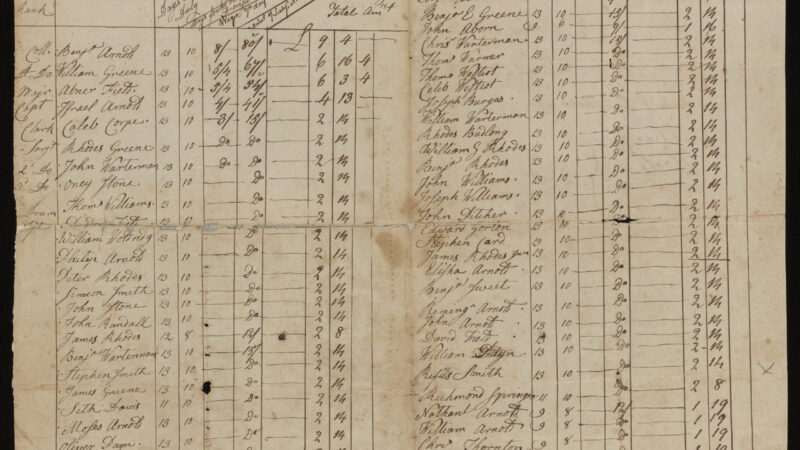 Rank Days Duty Total Amt
Coll. Benjn Arnold 13 10 8/ 80/ £ 9 4
William Greene 13 10 5/4 6 16 4
Majr Abner Field 13 10 5/4 6 3 4
Capt Israel Arnold 13 10 4/ 4 13
Clark Caleb Corpe 13 10 3/ 15/ 2 14
Sergt Rhodes Greene 13 10 Do Do 2 14
2 Do John Warterman 13 10 Do Do 2 14
Do Oney Stone 13 10 Do 2 14
Thoms Williams 13 10 Do 2 14
13 10 Do 2 14
William 13 10 Do 2 14
Arnold 13 10 Do 2 14
Peter Rhodes 13 10 Do 2 14
Simeon Smith 13 10 Do 2 14
John Stone 13 10 Do 2 14
John Randall 13 10 Do 2 14
James Rhodes 12 8 12/ 2 8
Benjn Warterman 13 10 15/ 2 14
Stephen Smith 13 10 Do 2 14
James Greene 13 10 Do 2 14
Seth Davis 11 10 Do 2 14
Moses Arnold 13 10 Do 2 14
Oliver 13 10 Do 2 14
Benjn E Greene 13 10 15/ 2 14
John Aborn 9 6 1 16
Chris Warterman 13 10 15/ 2 14
Thos Warner 13 10 Do 2 14
Thomas 13 10 Do 2 14
Caleb 13 10 Do 2 14
Joseph Burgas 13 10 Do 2 14
William Warterman 13 10 Do 2 14
Rhodes Budlong 13 10 Do 2 14
William G Rhodes 13 10 Do 2 14
Benjn Rhodes 13 10 Do 2 14
John Williams 13 10 Do 2 14
Joseph Williams 13 10 Do 2 14
John Pitcher 13 10 Do 2 14
Edward Gorton 13 10 2 14
Stephen Card 13 10 Do 2 14
James Rhodes Junr 13 10 Do 2 14
Elisha Arnold 13 10 Do 2 14
Benjn Sweet 13 10 Do 2 14
Arnold 13 10 Do 2 14
John Arnold 13 10 Do 2 14
David Field 13 10 Do 2 14
William 13 10 Do 2 14
Rufus Smith 13 10 Do 2 14
Richmond Springer 11 10 Do 2 8
Nathant Arnold 9 8 12/ 1 19
William Arnold 9 8 Do 1 19
Chrs Thornton 9 8 Do 1 19